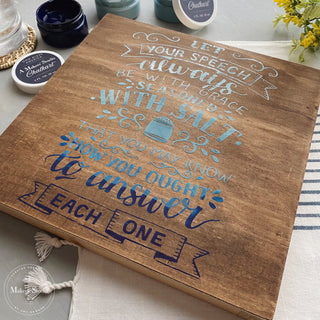 LET
YOUR SPEECH
always
BE WITH GRACE
SEASONED
WITH SALT
THAT YOU MAY KNOW
HOW YOU OUGHT
to answer
EACH ONE
A Makers' Studio
Chalkart
Chalkart